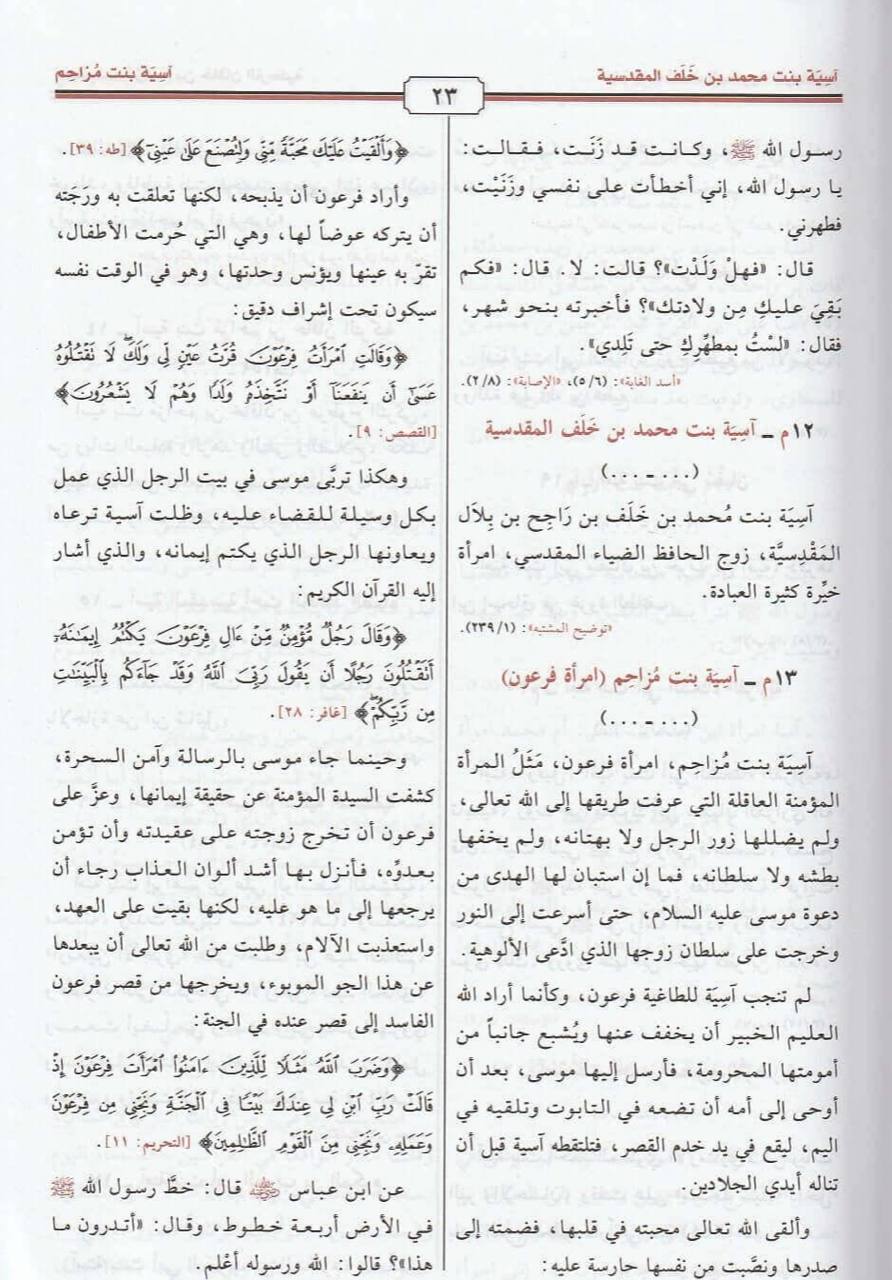 آسِيَة بنت محمد بن خَلَف المقدسية
٢٣
آسِيَة بنت مُزاحِم
رسول الله ﷺ، وكانت قد زَنَت، فقالت:
يا رسول الله، إني أخطأت على نفسي وزَنَيْت،
فطهرني.
قال: «فهلْ وَلَدْت»؟ قالت: لا. قال: «فكم
بَقِيَ عليكِ مِن ولادتك»؟ فأخبرته بنحو شهر،
فقال: «لسْتُ بمطهِّركِ حتى تَلِدي».
«أسد الغابة»: (٥/٦)، «الإصابة»: (٢/٨).
١٢م ـ آسِيَة بنت محمد بن خَلَف المقدسية
(... ـ ...)
آسِيَة بنت مُحمد بن خَلَف بن رَاجِح بن بِلاَل
المَقْدِسِيَّة، زوج الحافظ الضياء المقدسي، امرأة
خيِّرة كثيرة العبادة.
«توضيح المشتبه»: (٢٣٩/١).
١٣م ـ آسِيَة بنت مُزاحِم (امرأة فرعون)
(... ـ ...)
آسِيَة بنت مزاحم، امرأة فرعون، مَثَلُ المرأة
المؤمنة العاقلة التي عرفت طريقها إلى الله تعالى،
ولم يضللها زور الرجل ولا بهتانه، ولم يخفها
بطشه ولا سلطانه، فما إن استبان لها الهدى من
دعوة موسى عليه السلام، حتى أسرعت إلى النور
وخرجت على سلطان زوجها الذي ادَّعى الألوهية.
لم تنجب آسِيَة للطاغية فرعون، وكأنما أراد الله
العليم الخبير أن يخفف عنها ويُشبع جانباً من
أمومتها المحرومة، فأرسل إليها موسى، بعد أن
أوحى إلى أمه أن تضعه في التابوت وتلقيه في
اليم، ليقع في يد خدم القصر، فتلتقطه آسية قبل أن
تناله أيدي الجلادين.
وألقى الله تعالى محبته في قلبها، فضمته إلى
صدرها ونصَّبت من نفسها حارسة عليه:
﴿وَأَلْقَيْتُ عَلَيْكَ مَحَبَّةً مِّنِّي وَلِتُصْنَعَ عَلَىٰ عَيْنِيٓ﴾ [طه: ٣٩].
وأراد فرعون أن يذبحه، لكنها تعلقت به ورَجَته
أن يتركه عوضاً لها، وهي التي حُرمت الأطفال،
تقرّ به عينها ويؤنس وحدتها، وهو في الوقت نفسه
سيكون تحت إشراف دقيق:
﴿وَقَالَتِ ٱمْرَأَتُ فِرْعَوْنَ قُرَّتُ عَيْنٍ لِّي وَلَكَ ۖ لَا تَقْتُلُوهُ
عَسَىٰٓ أَن يَنفَعَنَآ أَوْ نَتَّخِذَهُۥ وَلَدًا وَهُمْ لَا يَشْعُرُونَ﴾
[القصص: ٩].
وهكذا تربَّى موسى في بيت الرجل الذي عمل
بكل وسيلة للقضاء عليه، وظلت آسية ترعاه
ويعاونها الرجل الذي يكتم إيمانه، والذي أشار
إليه القرآن الكريم:
﴿وَقَالَ رَجُلٌ مُّؤْمِنٌ مِّنْ ءَالِ فِرْعَوْنَ يَكْتُمُ إِيمَٰنَهُۥٓ
أَتَقْتُلُونَ رَجُلًا أَن يَقُولَ رَبِّيَ ٱللَّهُ وَقَدْ جَآءَكُم بِٱلْبَيِّنَٰتِ
مِن رَّبِّكُمْ ۖ﴾ [غافر: ٢٨].
وحينما جاء موسى بالرسالة وآمن السحرة،
كشفت السيدة المؤمنة عن حقيقة إيمانها، وعزَّ على
فرعون أن تخرج زوجته على عقيدته وأن تؤمن
بعدوِّه، فأنزل بها أشد ألوان العذاب رجاء أن
يرجعها إلى ما هو عليه، لكنها بقيت على العهد،
واستعذبت الآلام، وطلبت من الله تعالى أن يبعدها
عن هذا الجو الموبوء، ويخرجها من قصر فرعون
الفاسد إلى قصر عنده في الجنة:
﴿وَضَرَبَ ٱللَّهُ مَثَلًا لِّلَّذِينَ ءَامَنُوا۟ ٱمْرَأَتَ فِرْعَوْنَ إِذْ
قَالَتْ رَبِّ ٱبْنِ لِي عِندَكَ بَيْتًا فِي ٱلْجَنَّةِ وَنَجِّنِي مِن فِرْعَوْنَ
وَعَمَلِهِۦ وَنَجِّنِي مِنَ ٱلْقَوْمِ ٱلظَّٰلِمِينَ﴾ [التحريم: ١١].
عن ابن عباس ﵁ قال: خطَّ رسول الله ﷺ
في الأرض أربعة خطوط، وقال: «أتدرون ما
هذا»؟ قالوا: الله ورسوله أعْلم.